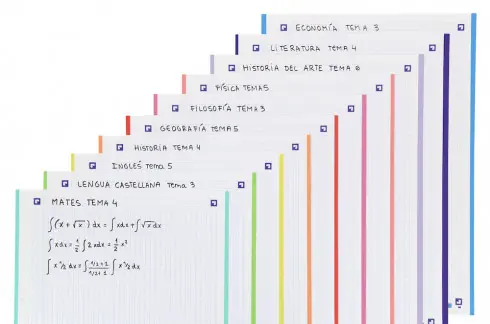 ECONOMÍA TEMA 3
LITERATURA TEMA 4
HISTORIA DEL ARTE TEMA 6
FÍSICA TEMA 5
FILOSOFÍA TEMA 3
GEOGRAFÍA TEMA 5
HISTORIA TEMA 4
INGLÉS TEMA 5
LENGUA CASTELLANA TEMA 3
MATES TEMA 4
∫(x + √x) dx = ∫xdx + ∫√x dx
∫xdx = 1/2 ∫2xdx = 1/2 x²